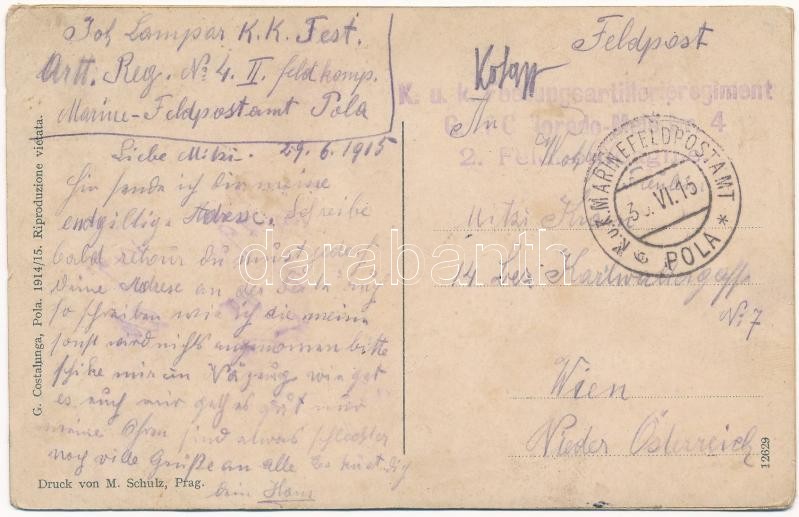 Joh Lampar K. K. Fest.
Artt. Reg. No 4. II. feldkomp.
Marine-Feldpostamt Pola
Liebe Mitzi. 29.6.1915
Hir sende ich dir meine
endgiltige Adrese. Schreibe
bald retour du must
deine Adrese an der
so schreiben wie ich die meine
sonst wird nichts angenomen bitte
schike mir ein wie get
es euch mir geth es gut nur
meine Ohren sind etwas schlechter
noch ville Grüße an alle Es küst dich
dein Hans
G. Costalunga, Pola. 1914/15. Riproduzione vietata.
Druck von M. Schulz, Prag.
Feldpost
K. u. k. Festungsartillerieregiment
4
2.
An
K.u.K. MARINEFELDPOSTAMT
VI.15
* POLA *
Mitzi
14 bez.
No 7
Wien
Nieder Österreich
12629
darabanth